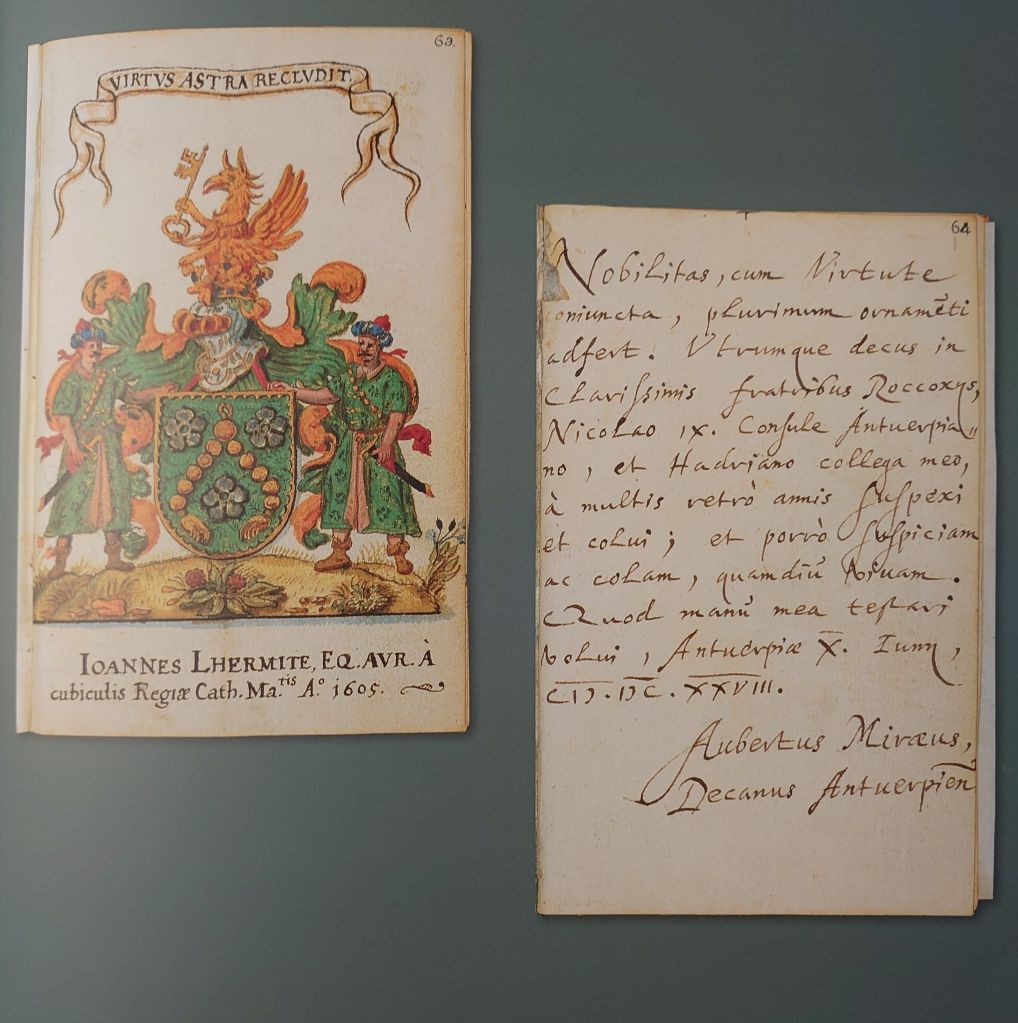 69.
VIRTVS ASTRA RECLVDIT.
IOANNES LHERMITE, EQ. AVR. À
cubiculis Regiæ Cath. Ma.tis A.o 1605.
64
Nobilitas, cum Virtute
coniuncta, plurimum ornamēti
adfert. Vtrumque decus in
Clariſsimis fratribus Roccoxys,
Nicolao ix. Conſule Antuerpia〃
no, et Hadriano collega meo,
à multis retrò annis ſuſpexi
et colui; et porrò ſuſpiciam
ac colam, quamdiù viuam.
Quod manū mea teſtari
volui, Antuerpiæ X̅. Iunij,
CIↃ. IↃC. XXVIII.
Aubertus Miræus,
Decanus Antuerpień